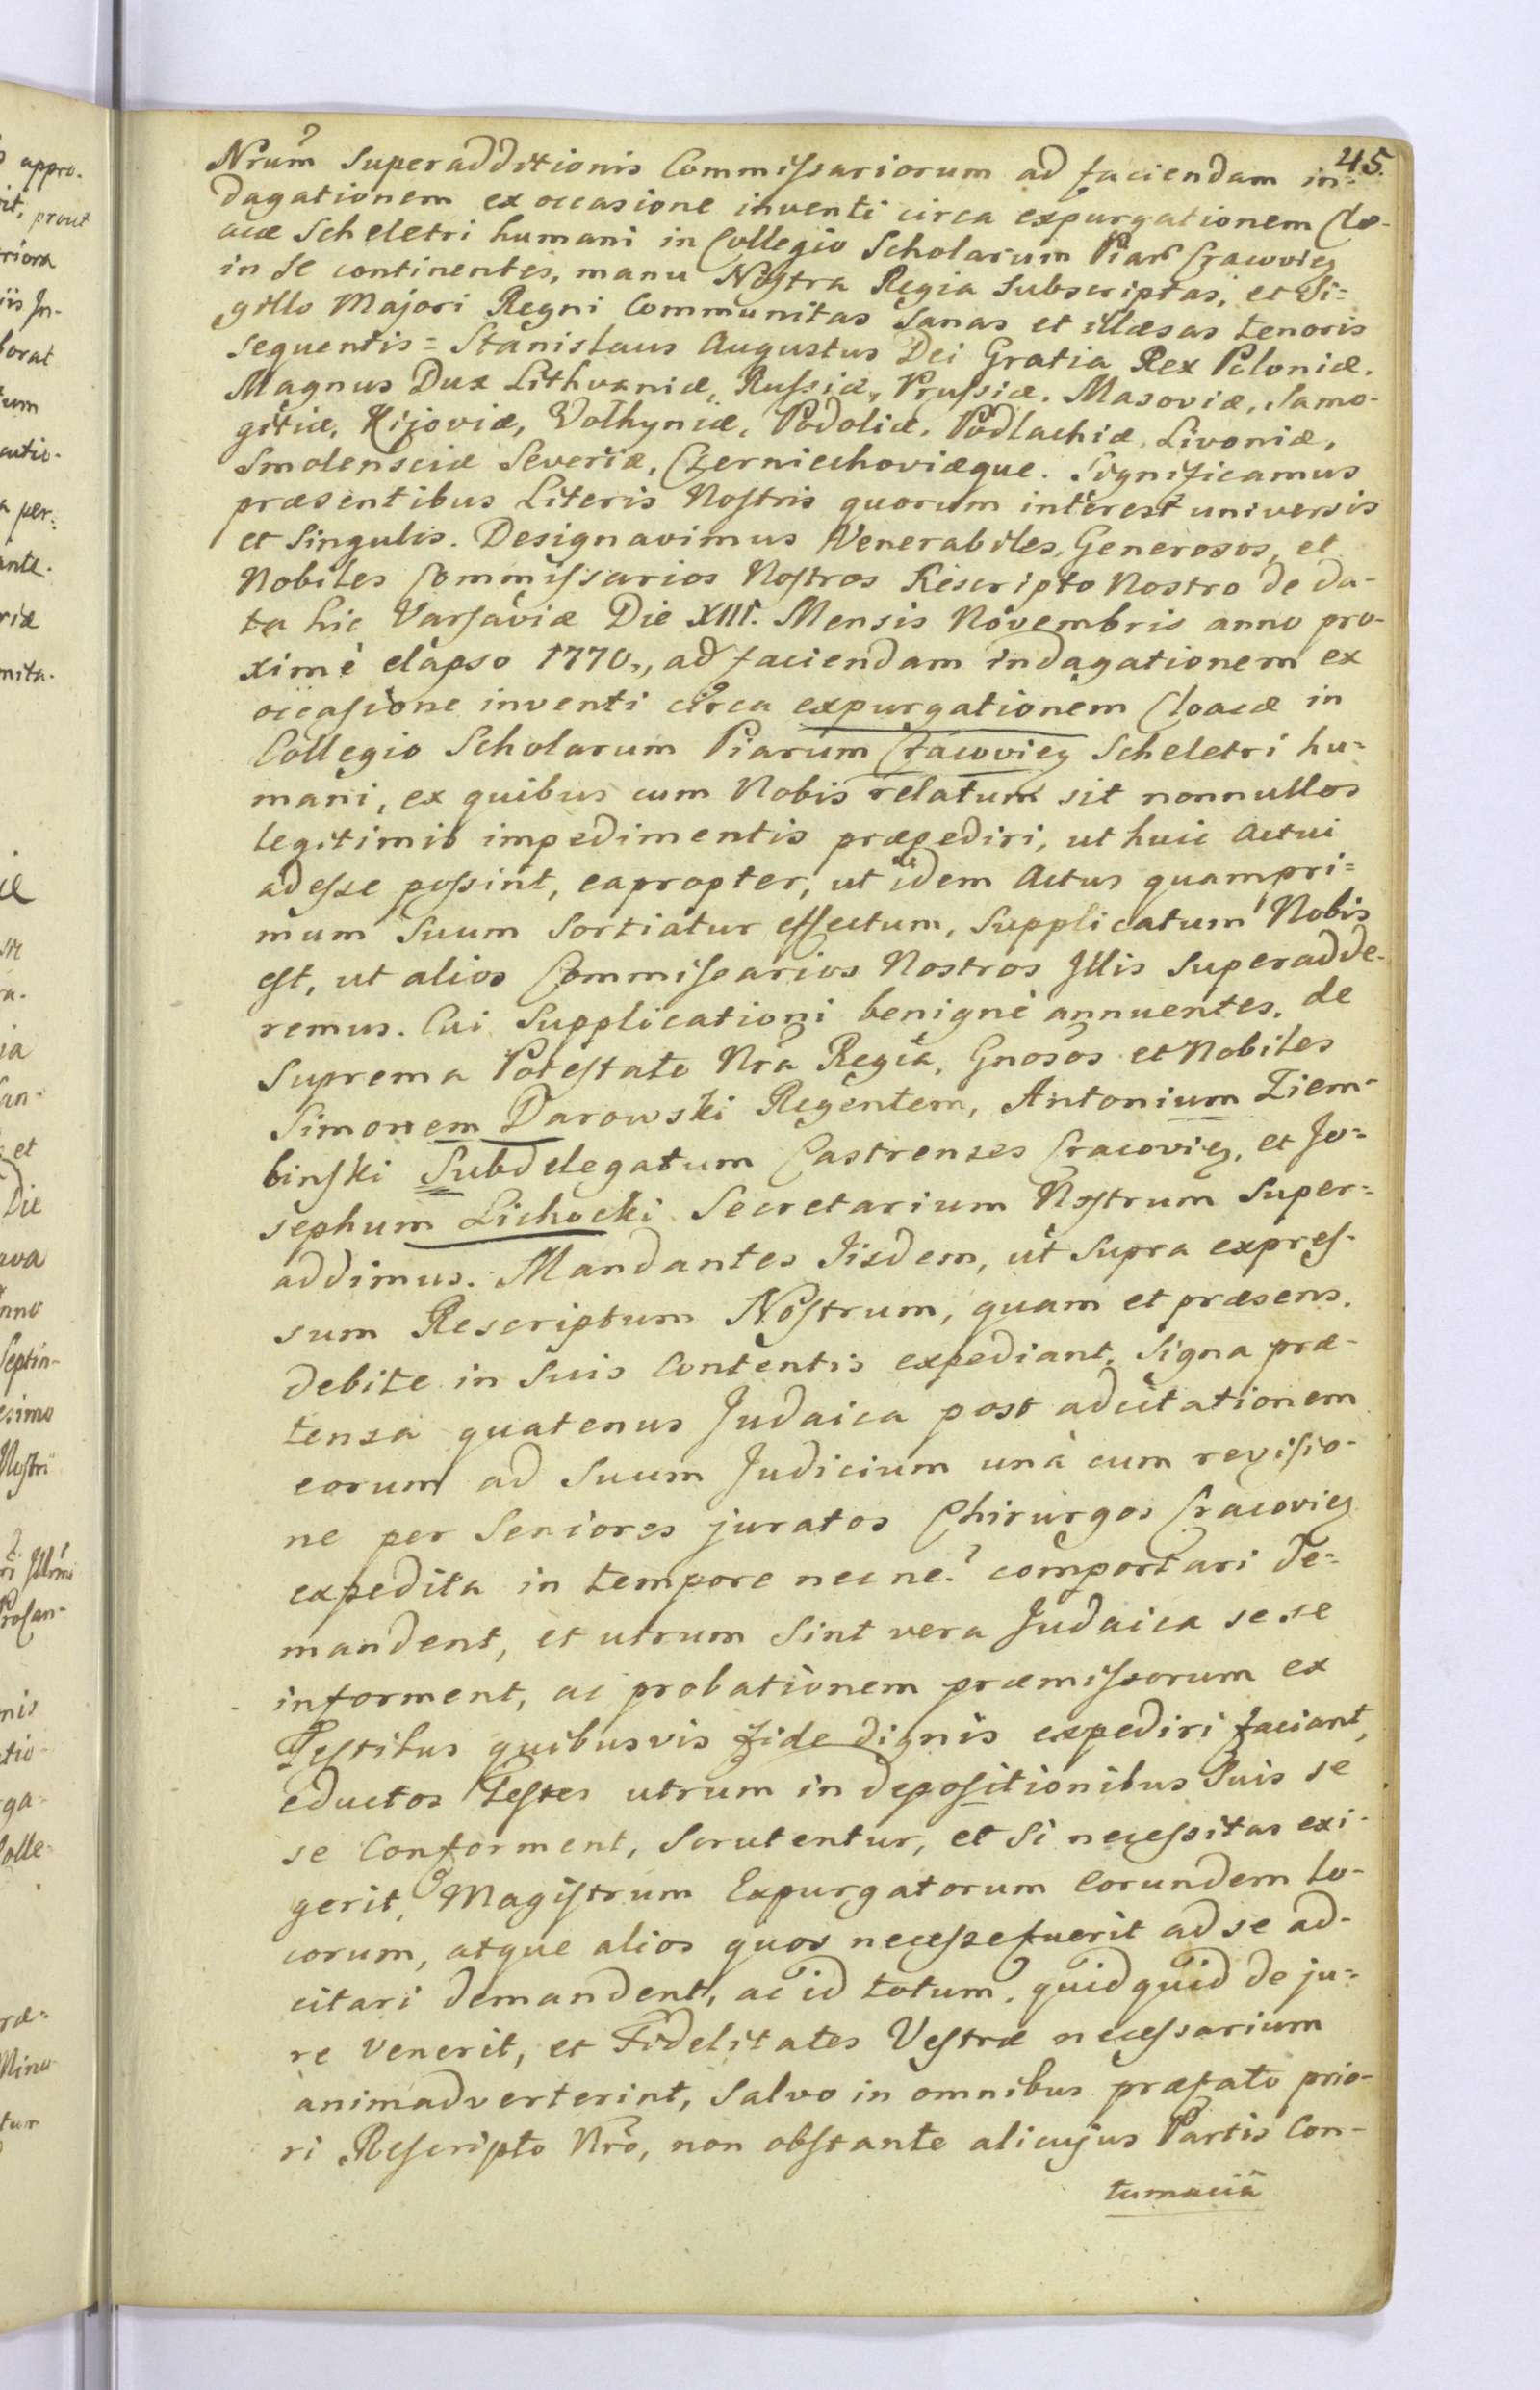 45.
Nrum Superadditionis Commissariorum ad faciendam in=
dagationem ex occasione inventi circa expurgationem Clo-
acæ Scheletri humani in Collegio Scholarum Piar Cracoviey
in se continentes, manu Nostra Regia subscriptas, et Si=
gillo Majori Regni Communitas Sanas et illæsas tenoris
sequentis = Stanislaus Augustus Dei Gratia Rex Poloniæ.
Magnus Dux Lithvaniæ, Russiæ, Prussiæ. Masoviæ, Samo-
gitiæ, Kijoviæ, Volhyniæ, Podoliæ, Podlachiæ, Livoniæ,
Smolensciæ Severiæ, Czerniechoviæque. Significamus
præsentibus Literis Nostris quorum interest universis
et Singulis. Designavimus Venerabiles, Generosos, et
Nobiles Commissarios Nostros Rescripto Nostro de da-
ta hic Varsaviæ Die XIII. Mensis Novembris anno pro-
ximè elapso 1770., ad faciendam indagationem ex
occasione inventi circa expurgationem Cloacæ in
Collegio Scholarum Piarum Cracoviey Scheletri hu=
mani, ex quibus cum Nobis relatum sit nonnullos
legitimis impedimentis præpediri, ut huic Actui
adesse possint, eapropter, ut idem Actus quampri=
mum suum sortiatur effectum, Supplicatum Nobis
est, ut alios Commissarios Nostros Illis superadde-
remus. Cui Supplicationi benignè annuentes, de
Suprema Potestate Nra Regia, Gnosos et Nobiles
Simonem Darowski Regentem, Antonium Ziem-
binski Subdelegatum Castrenses Cracoviey, et Jo=
sephum Lichocki Secretarium Nostrum super=
addimus. Mandantes Iisdem, ut supra expres-
sum Rescriptum Nostrum, quam et præsens,
debite in suis Contentis expediant, Signa præ-
tensa quatenus Judaica post adcitationem
eorum ad suum Judicium unà cum revisio-
ne per Seniores juratos Chirurgos Cracoviey
expedita in tempore nec ne? comportari de=
mandent, et utrum sint vera Judaica sese
informent, ac probationem præmissorum ex
Testibus quibusvis fide dignis expediri faciant,
eductos Testes utrum in depositionibus suis se
se Conforment, Scrutentur, et si necessitas exi-
gerit, Magistrum Expurgatorum Eorundem lo-
corum, atque alios quos necesse fuerit ad se ad-
citari demandent, ac id totum, quidquid de ju=
re venerit, et Fidelitates Vestræ necessarium
animadverterint, Salvo in omnibus præfato prio-
ri Rescripto Nro, non obstante alicujus Partis Con-
tumaciâ